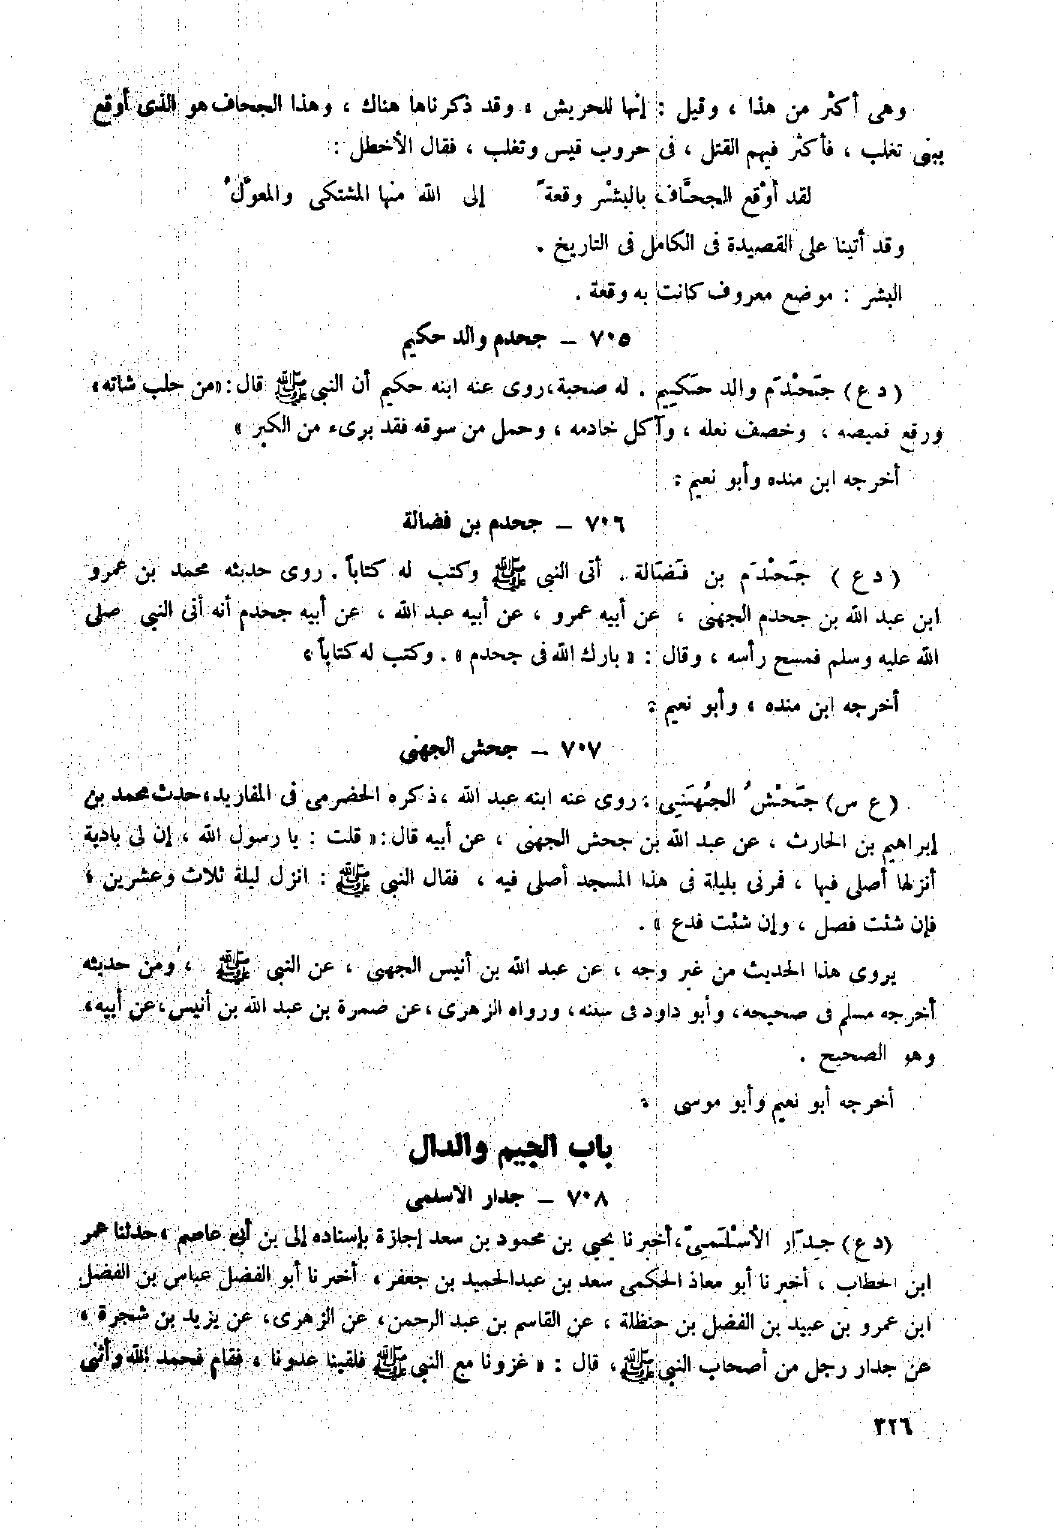 وهى أكثر من هذا ، وقيل : إنها للحريش ، وقد ذكرناها هناك ، وهذا الجحاف هو الذى أوقع
ببنى تغلب ، فأكثر فيهم القتل ، فى حروب قيس وتغلب ، فقال الأخطل :
لقد أوْقع الجحَّاف بالبشْر وقعةً إلى الله منها المشتكى والمعوَّلُ
وقد أتينا على القصيدة فى الكامل فى التاريخ .
البشر : موضع معروف كانت به وقعة .
٧٠٥ – جحدم والد حكيم
( د ع ) جَحْدَم والد حَكِيم . له صحبة، روى عنه ابنه حكيم أن النبى ﷺ قال : «من حلب شاته،
ورقع قميصه ، وخصف نعله ، وآكل خادمه ، وحمل من سوقه فقد برىء من الكبر »
أخرجه ابن منده وأبو نعيم :
٧٠٦ – جحدم بن فضالة
( د ع ) جَحْدَم بن فَضَالة . أتى النبى ﷺ وكتب له كتاباً . روى حديثه محمد بن عمرو
ابن عبد الله بن جحدم الجهنى ، عن أبيه عمرو ، عن أبيه عبد الله ، عن أبيه جحدم أنه أتى النبى صلى
الله عليه وسلم فمسح رأسه ، وقال : « بارك الله فى جحدم » . وكتب له كتاباً ،
أخرجه ابن منده ، وأبو نعيم :
٧٠٧ – جحش الجهنى
( ع س ) جَحْشُ الجُهَنِيى : روى عنه ابنه عبد الله ، ذكره الحضرمى فى المفاريد، حدث محمد بن
إبراهيم بن الحارث ، عن عبد الله بن جحش الجهنى ، عن أبيه قال : « قلت : يا رسول الله ، إن لى بادية
أنزلها أصلى فيها ، فمرنى بليلة فى هذا المسجد أصلى فيه ، فقال النبى ﷺ : انزل ليلة ثلاث وعشرين ،
فإن شئت فصل ، وإن شئت فدع » .
يروى هذا الحديث من غير وجه ، عن عبد الله بن أنيس الجهنى ، عن النبى ﷺ ، ومن حديثه
أخرجه مسلم فى صحيحه، وأبو داود فى سننه، ورواه الزهرى، عن ضمرة بن عبد الله بن أنيس، عن أبيه،
وهو الصحيح .
أخرجه أبو نعيم وأبو موسى :
باب الجيم والدال
٧٠٨ – جدار الأسلمى
(د ع) جِدَار الأسْلَمىّ، أخبرنا يحيى بن محمود بن سعد إجازة بإسناده إلى بن أبى عاصم ، حدثنا عمر
ابن الخطاب ، أخبرنا أبو معاذ الحكمى سعد بن عبد الحميد بن جعفر ، أخبرنا أبو الفضل عباس بن الفضل
ابن عمرو بن عبيد بن الفضل بن حنظلة ، عن القاسم بن عبد الرحمن، عن الزهرى، عن يزيد بن شجرة ،
عن جدار رجل من أصحاب النبى ﷺ ، قال : « غزونا مع النبى ﷺ فلقينا عدونا ، فقام فحمد الله وأثنى
٣٢٦